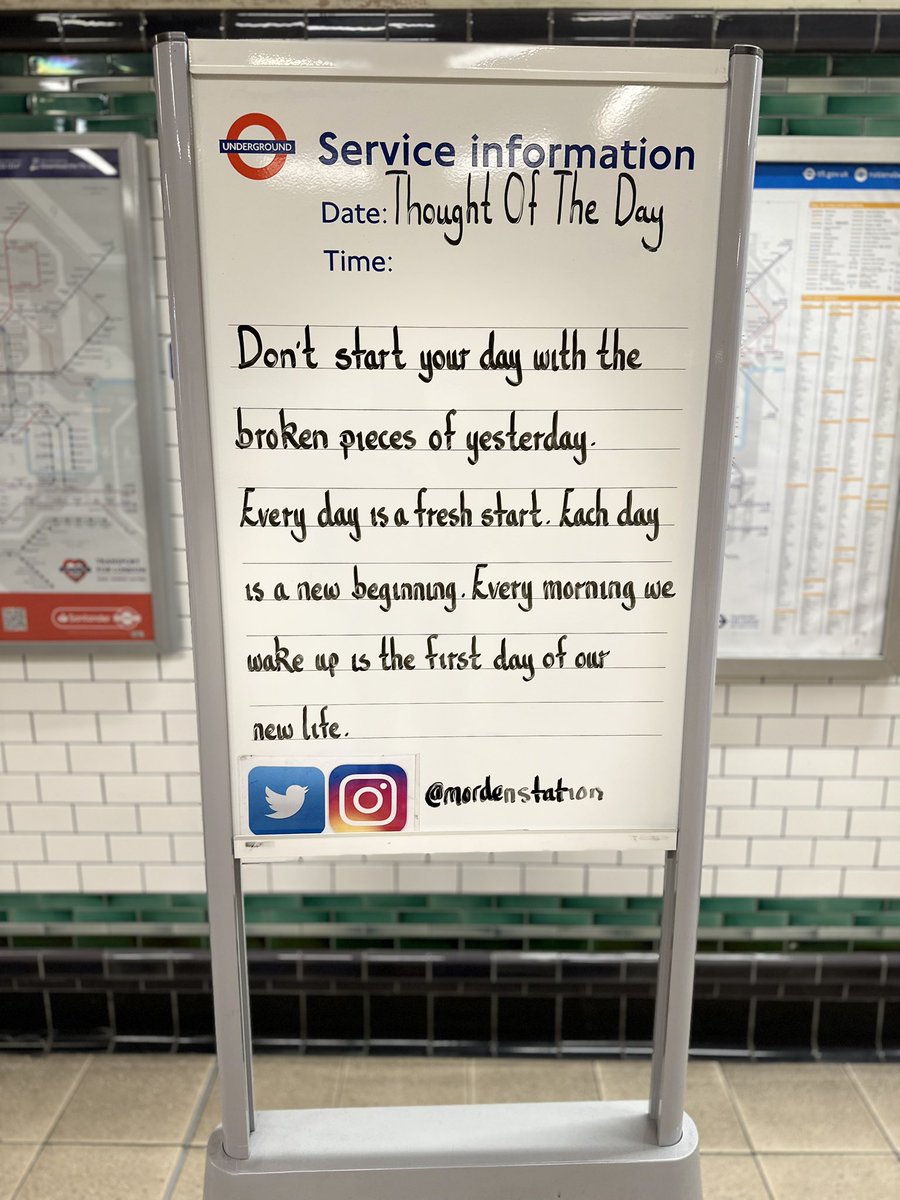 UNDERGROUND
Service information
Date: Thought Of The Day
Time:
Don't start your day with the
broken pieces of yesterday.
Every day is a fresh start. Each day
is a new beginning. Every morning we
wake up is the first day of our
new life.
@mordenstation
TRANSPORT
FOR LONDON
Santander
tfl.gov.uk